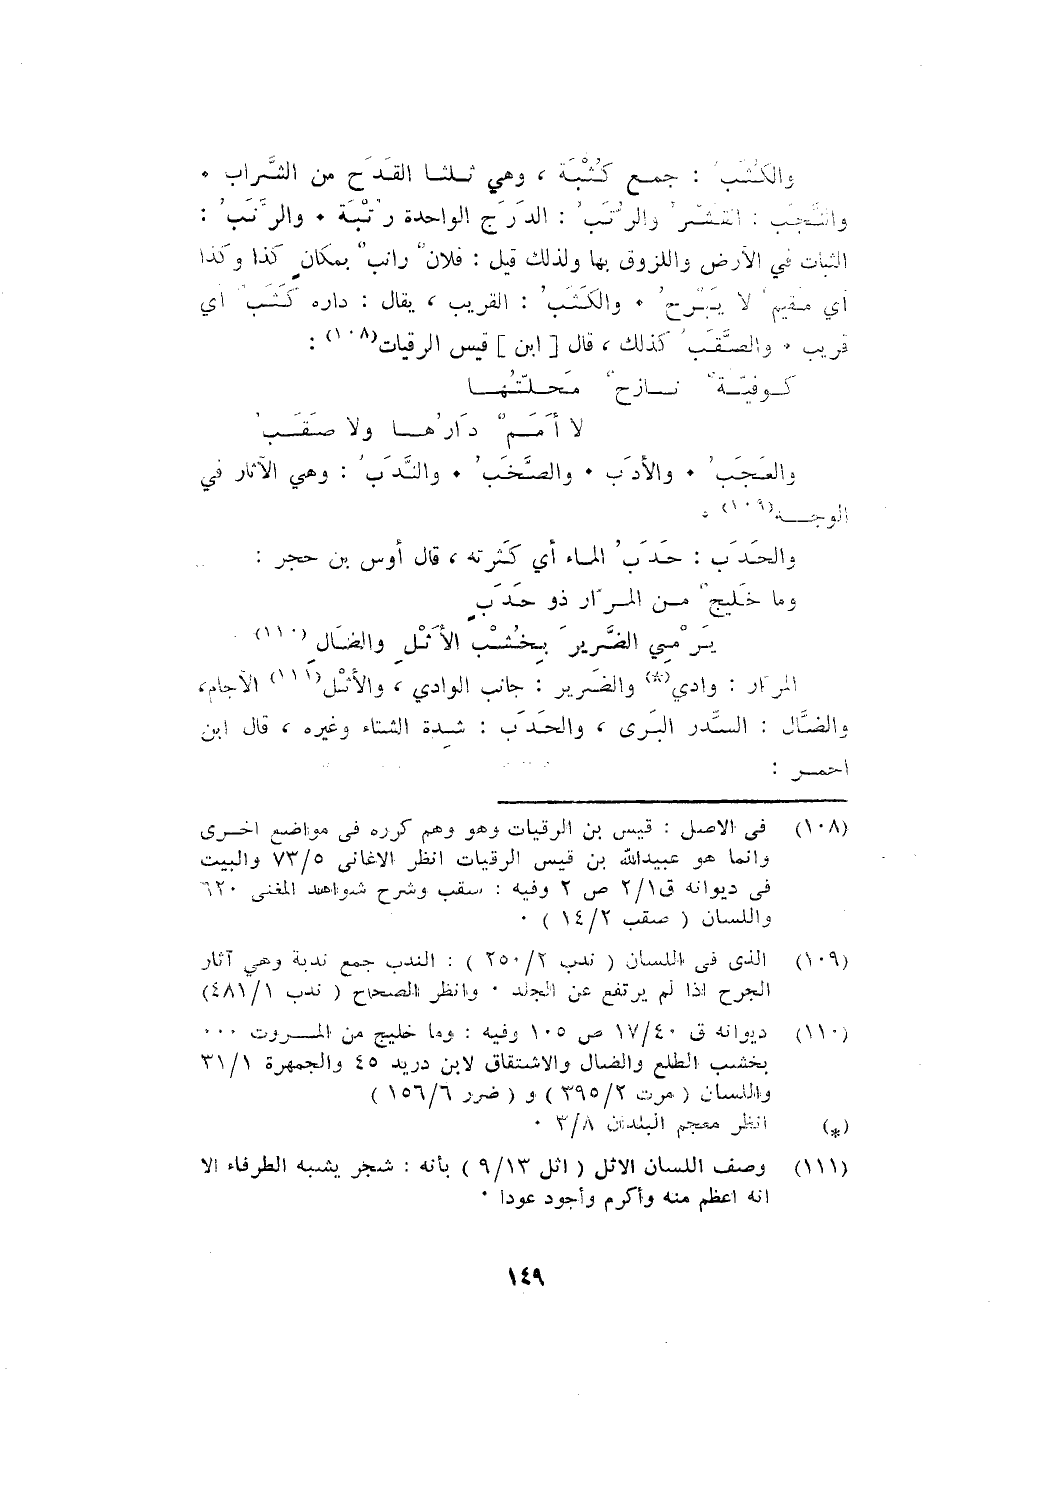 والكُثَب ُ : جمـع كُثْبَة ، وهي ثـلثـا القَدَح من الشَّراب •
والنَّجَب : القشر ُ والر ُتَب ُ : الدَرَج الواحدة ر ُتْبَة • والر َّتَب ُ :
الثبات في الأرض واللزوق بها ولذلك قيل : فلان ٌ راتب ٌ بمكان ٍ كذا وكذا
أي مقيم ٌ لا يَبْرح ُ • والكَثَب ُ : القريب ، يقال : داره كَثَب ٌ أي
قريب • والصَّقَب ُ كذلك ، قال [ ابن ] قيس الرقيات(١٠٨) :
كـوفيّـة ٌ نـازح ٌ مَحـلّتُهـا
لا أَمَـم ٌ دَار ُهـا ولا صَقَـب ُ
والعَجَب ُ • والأدَب • والصَّخَب ُ • والنَّدَب ُ : وهي الآثار في
الوجـه(١٠٩) •
والحَدَب : حَدَب ُ المـاء أي كَثرته ، قال أوس بن حجر :
وما خَليج ٌ مـن المـرّار ذو حَدَب ٍ
يَر ْمِي الضَّرير َ بِخُشْب الأَثْل ِ والضَالِ (١١٠)
المرّار : وادي(*) والضَرير : جانب الوادي ، والأثْل(١١١) الآجام،
والضَّال : السِّدر البَرِى ، والحَدَب : شِدة الشتاء وغيره ، قال ابن
احمـر :
(١٠٨) فى الاصل : قيس بن الرقيات وهو وهم كرره فى مواضع اخـرى
وانما هو عبيدالله بن قيس الرقيات انظر الاغانى ٧٣/٥ والبيت
فى ديوانه ق٢/١ ص ٢ وفيه : سقب وشرح شواهد المغنى ٦٢٠
واللسان ( صقب ١٤/٢ ) •
(١٠٩) الذى فى اللسان ( ندب ٢٥٠/٢ ) : الندب جمع ندبة وهي آثار
الجرح اذا لم يرتفع عن الجلد • وانظر الصحاح ( ندب ٤٨١/١)
(١١٠) ديوانه ق ١٧/٤٠ ص ١٠٥ وفيه : وما خليج من المـروت •••
بخشب الطلع والضال والاشتقاق لابن دريد ٤٥ والجمهرة ٣١/١
واللسان ( مرت ٣٩٥/٢ ) و ( ضرر ١٥٦/٦ )
(*) انظر معجم البلدان ٣/٨ •
(١١١) وصف اللسان الاثل ( اثل ٩/١٣ ) بأنه : شجر يشبه الطرفاء الا
انه اعظم منه وأكرم وأجود عودا •
١٤٩